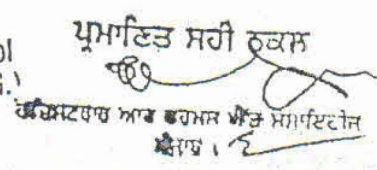 ਪ੍ਰਮਾਣਿਤ ਸਹੀ ਨਕਲ
ਰਜਿਸਟਰਾਰ ਆਫ ਫਰਮਸ ਐਂਡ ਸੋਸਾਇਟੀਜ
ਪੰਜਾਬ।